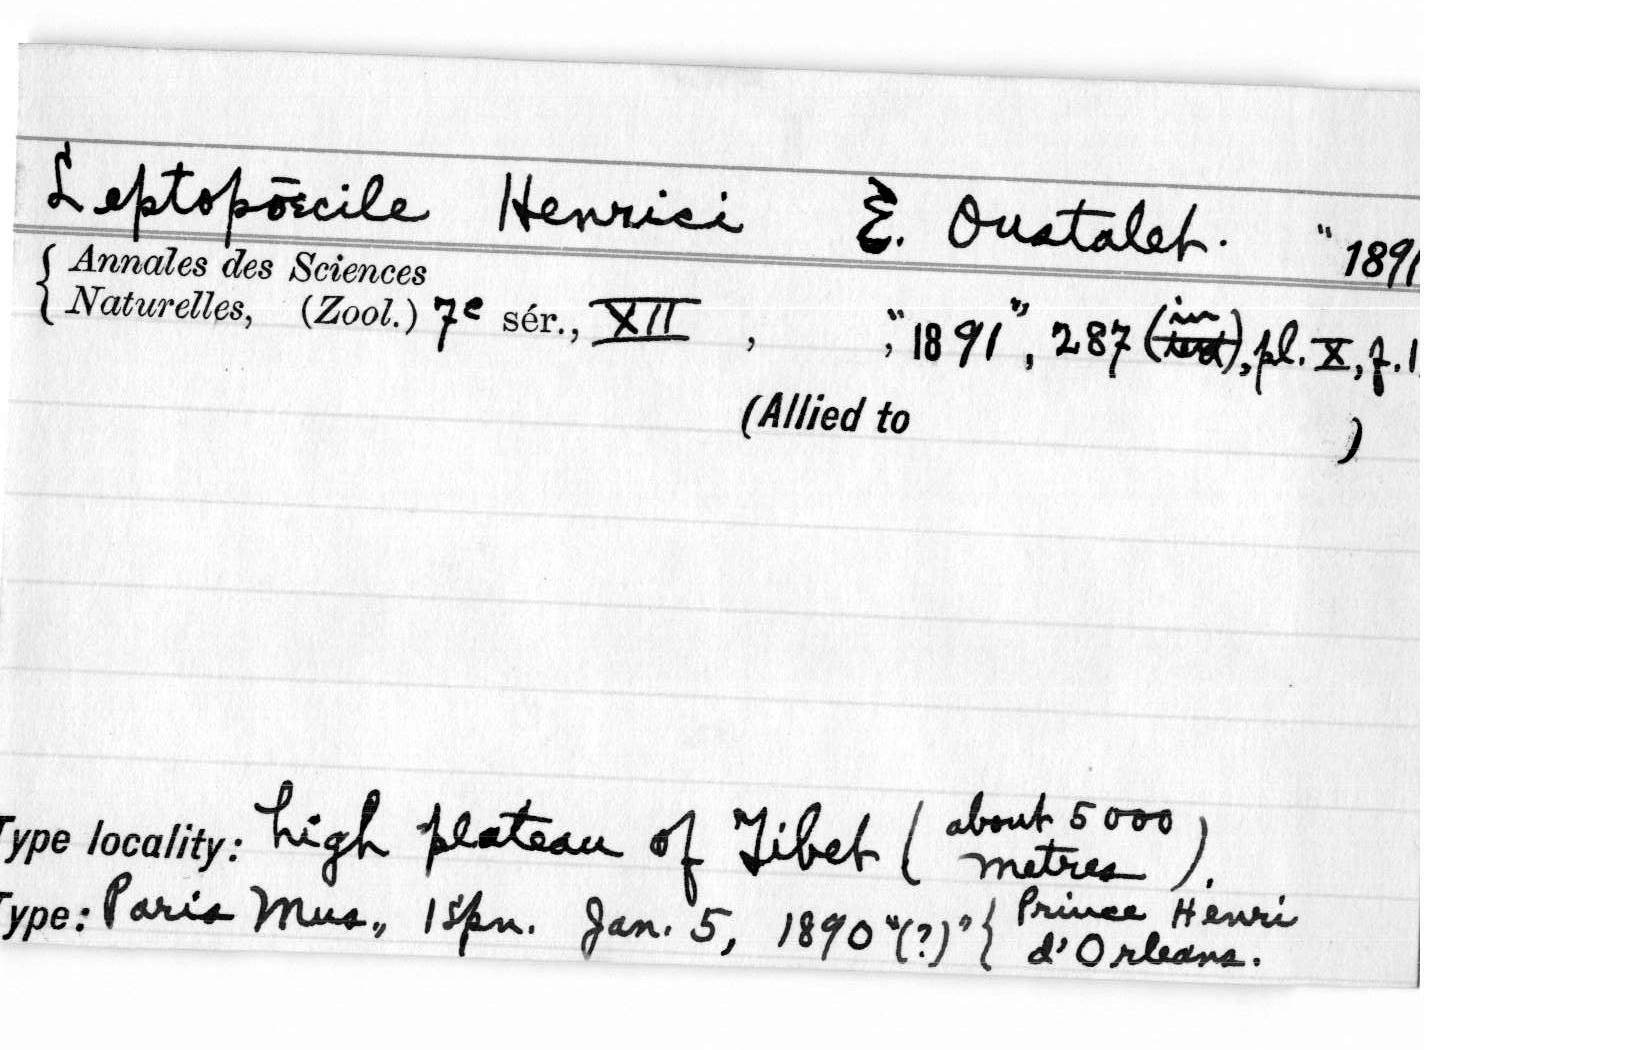 Leptopœcile Henrici E. Oustalet. "1891
Annales des Sciences
Naturelles, (Zool.) 7e sér., XII , , "1891", 287 (in), pl. X, f. 1
(Allied to )
Type locality: high plateau of Tibet ( about 5000 metres ).
Type: Paris Mus., 1 spn. Jan. 5, 1890 "(?)" { Prince Henri d'Orleans.